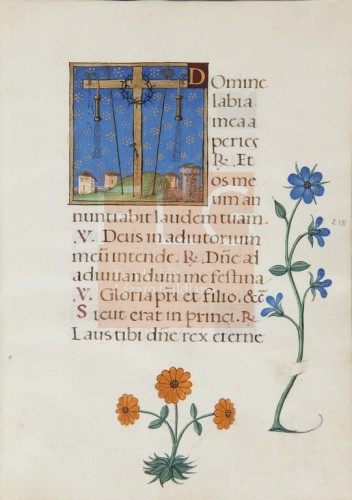 Domine
labia
mea a
peries
R. Et
os me
um an
nuntiabit laudem tuam.
V. Deus in adiutorium
meũ intende. R. Dñe ad
adiuuandum me festina
V. Gloria pri et filio, &c̃
Sicut erat in princi. R
Laus tibi dñe rex eterne